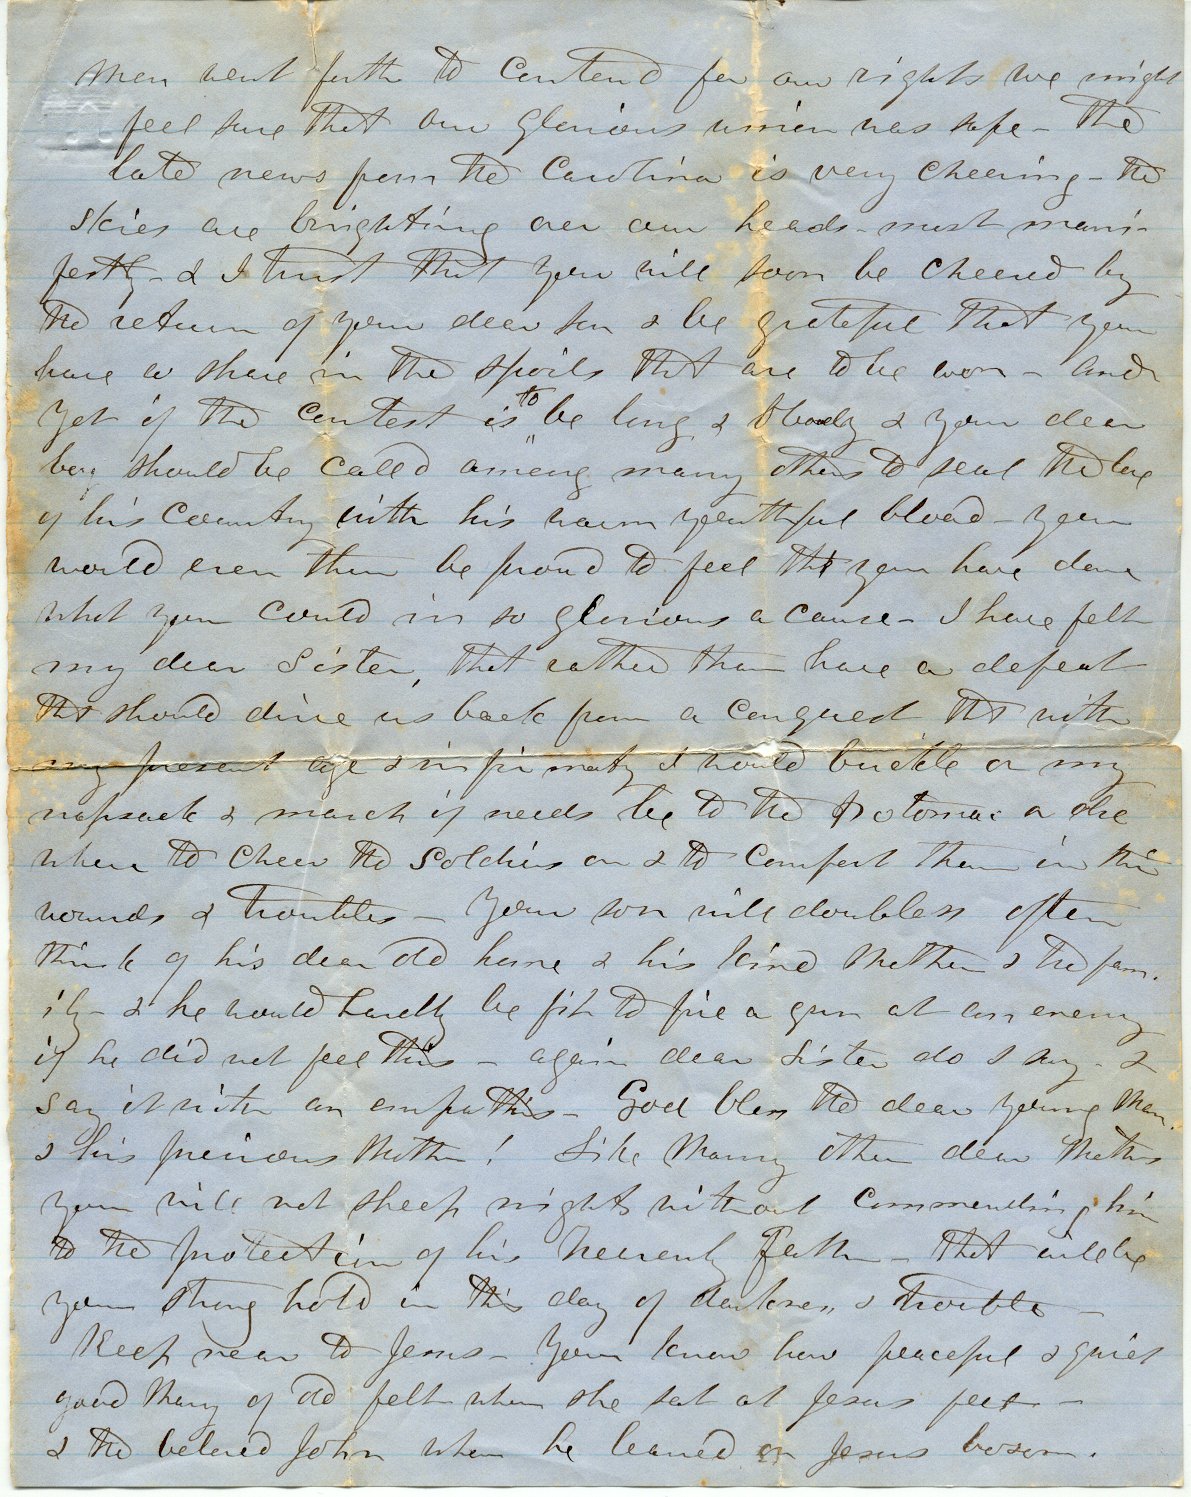 men went forth to contend for our rights we might
feel sure that our glorious union was safe - The
late news from the Carolina is very cheering - the
skies are brighting over our heads - most mani-
festly - & I trust that you will soon be cheered by
the return of your dear son & be grateful that you
have a share in the spoils that are to be won - and
yet if the contest is to be long & bloody & your dear
boy should be called among many others to seal the love
of his Country with his warm youthful blood - you
would even then be proud to feel that you have done
what you could in so glorious a cause - I have felt
my dear Sister, that rather than have a defeat
that should drive us back from a conquest that with
my present age & infirmity I would buckle on my
napsack & march if needs be to the Potomac or else
where to cheer the soldiers on & to comfort them in their
wounds & troubles - Your son will doubless often
think of his dear old home & his kind Mother & the fam-
ily - & he would hardly be fit to fire a gun at an enemy
if he did not feel this - again dear Sister do I say - &
say it with an empathis - God bless the dear young Man
& his precious Mother! Like Many other dear Mothers
you will not sheep nights without commending him
to the protection of his Heavenly Father - That will be
your strong hold in this day of darkness & trouble -
Keep near to Jesus - You know how peaceful & quiet
good Mary of old felt when she sat at Jesus feet -
& the beloved John when he leaned on Jesus bosom.